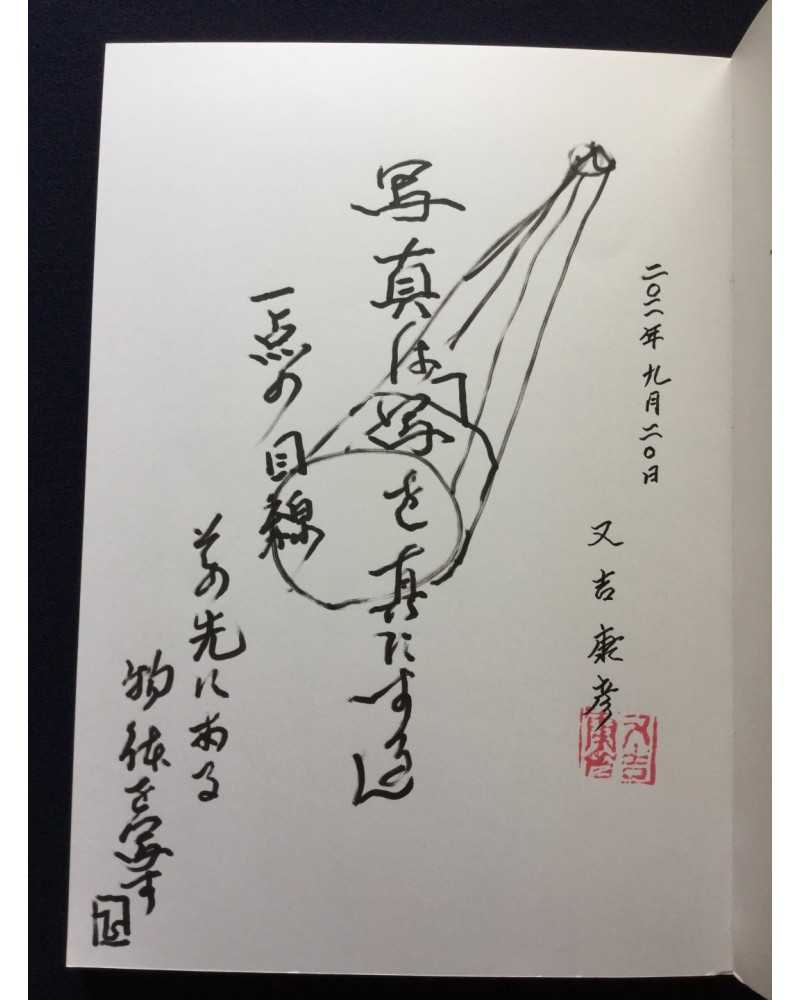 二〇二一年 九月二〇日
又吉康彦
又吉
康彦
写真は「写を真にする」
一点の目線
その先にある
物体を写す